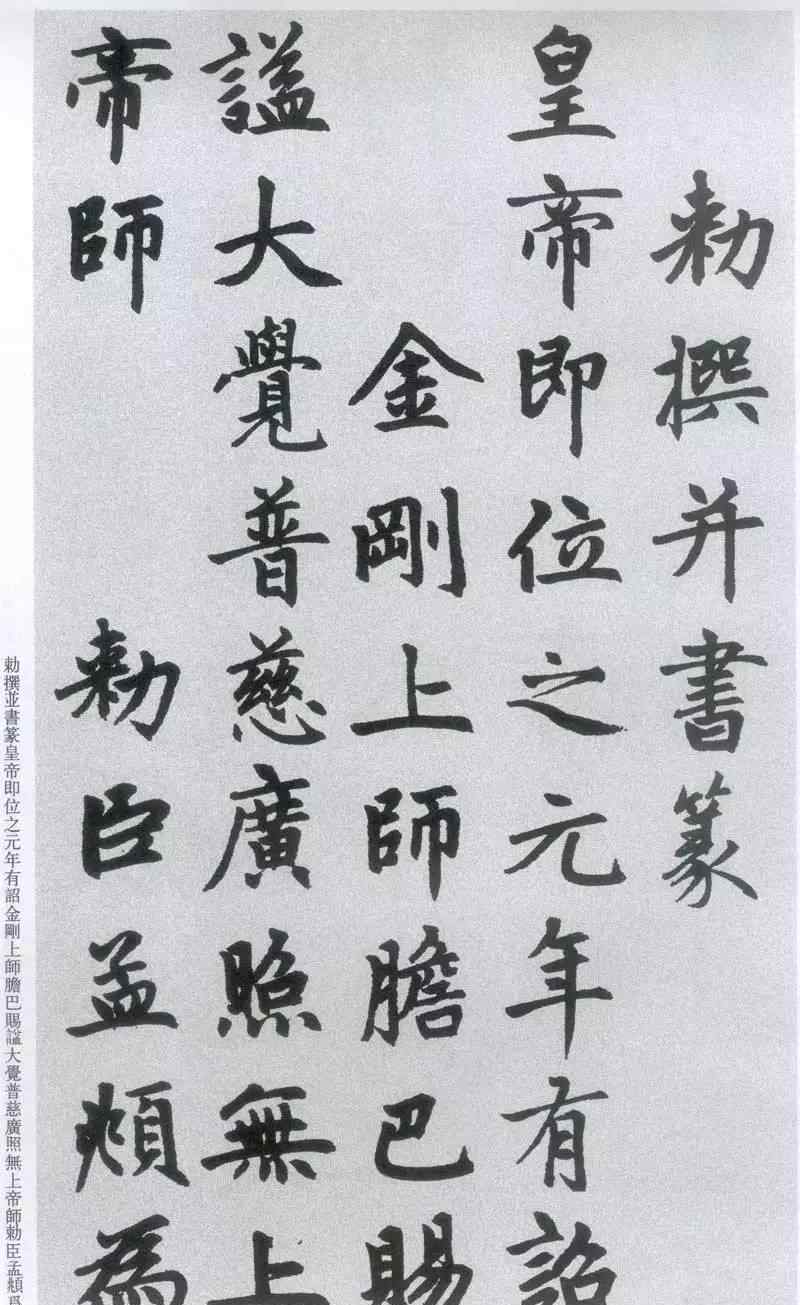 勅撰并書篆
皇帝即位之元年有詔
金剛上師膽巴賜
謚大覺普慈廣照無上
帝師
勅臣孟頫為
勅撰並書篆皇帝即位之元年有詔金剛上師膽巴賜謚大覺普慈廣照無上帝師勅臣孟頫為